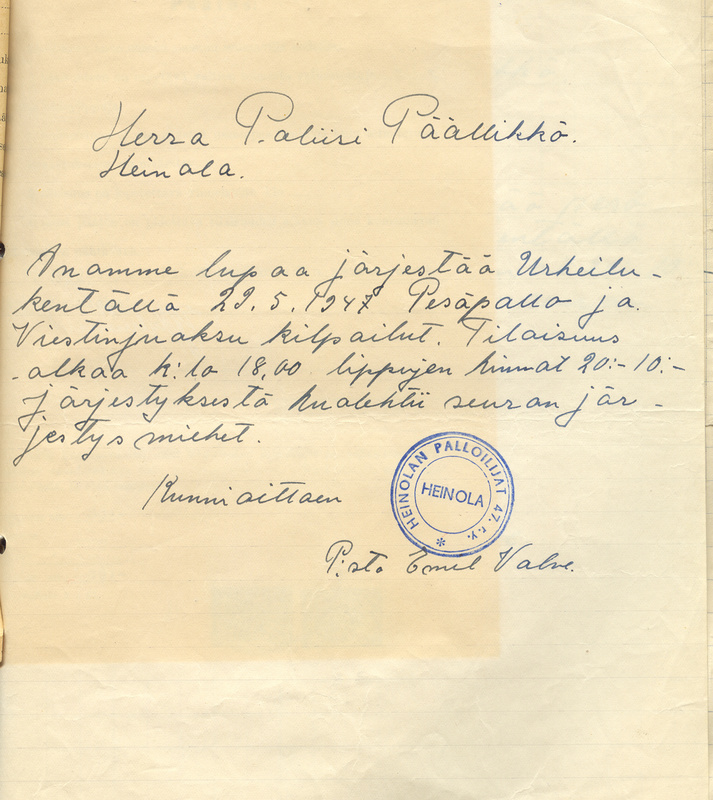 Herra Poliisi Päällikkö.
Heinola.
Anomme lupaa järjestää Urheilu-
kentällä 29.5.1947 Pesäpallo ja
Viestinjuoksu kilpailut. Tilaisuus
alkaa k:lo 18,00 lippujen hinnat 20:- 10:-
järjestyksestä huolehtii seuran jär-
jestys miehet.
Kunnioittaen
HEINOLAN PALLOILIJAT 47. r.y.
HEINOLA
P:sta Emel Valve.